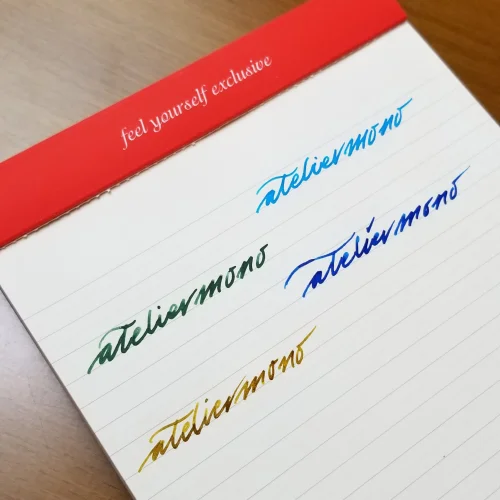 feel yourself exclusive
ateliermono
ateliermono
ateliermono
ateliermono